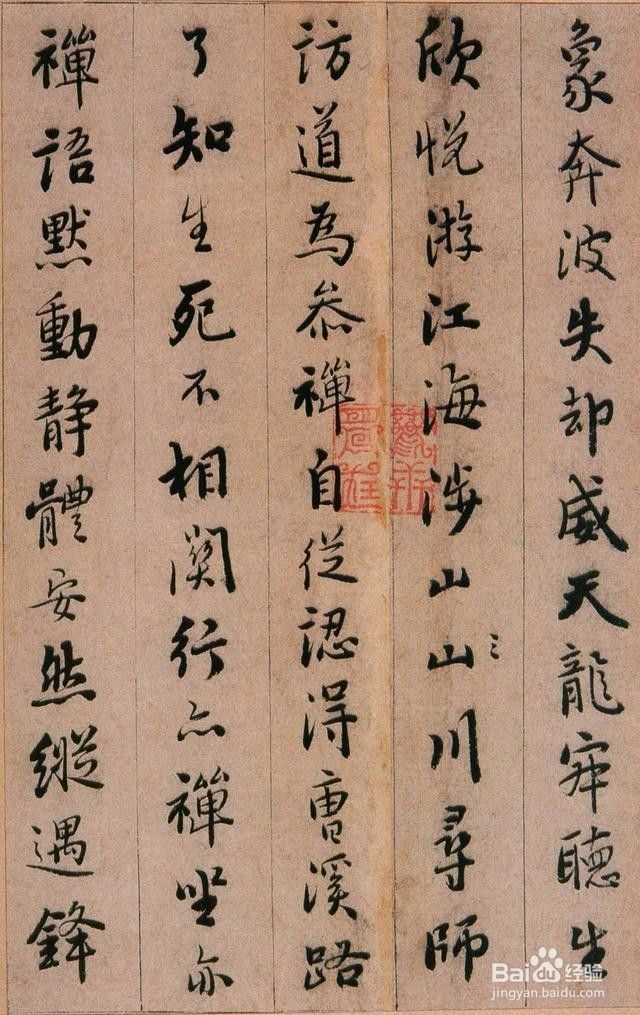 象奔波失却威天龍寂聽生
欣悅游江海涉山山川尋師
訪道為叅禪自從認得曹溪路
了知生死不相關行亦禪坐亦
禪語默動靜體安然縱遇鋒
Baidu 经验
jingyan.baidu.com